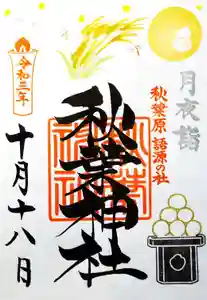 月夜詣
秋葉原 語源の社
秋葉神社
令和三年
十月十八日